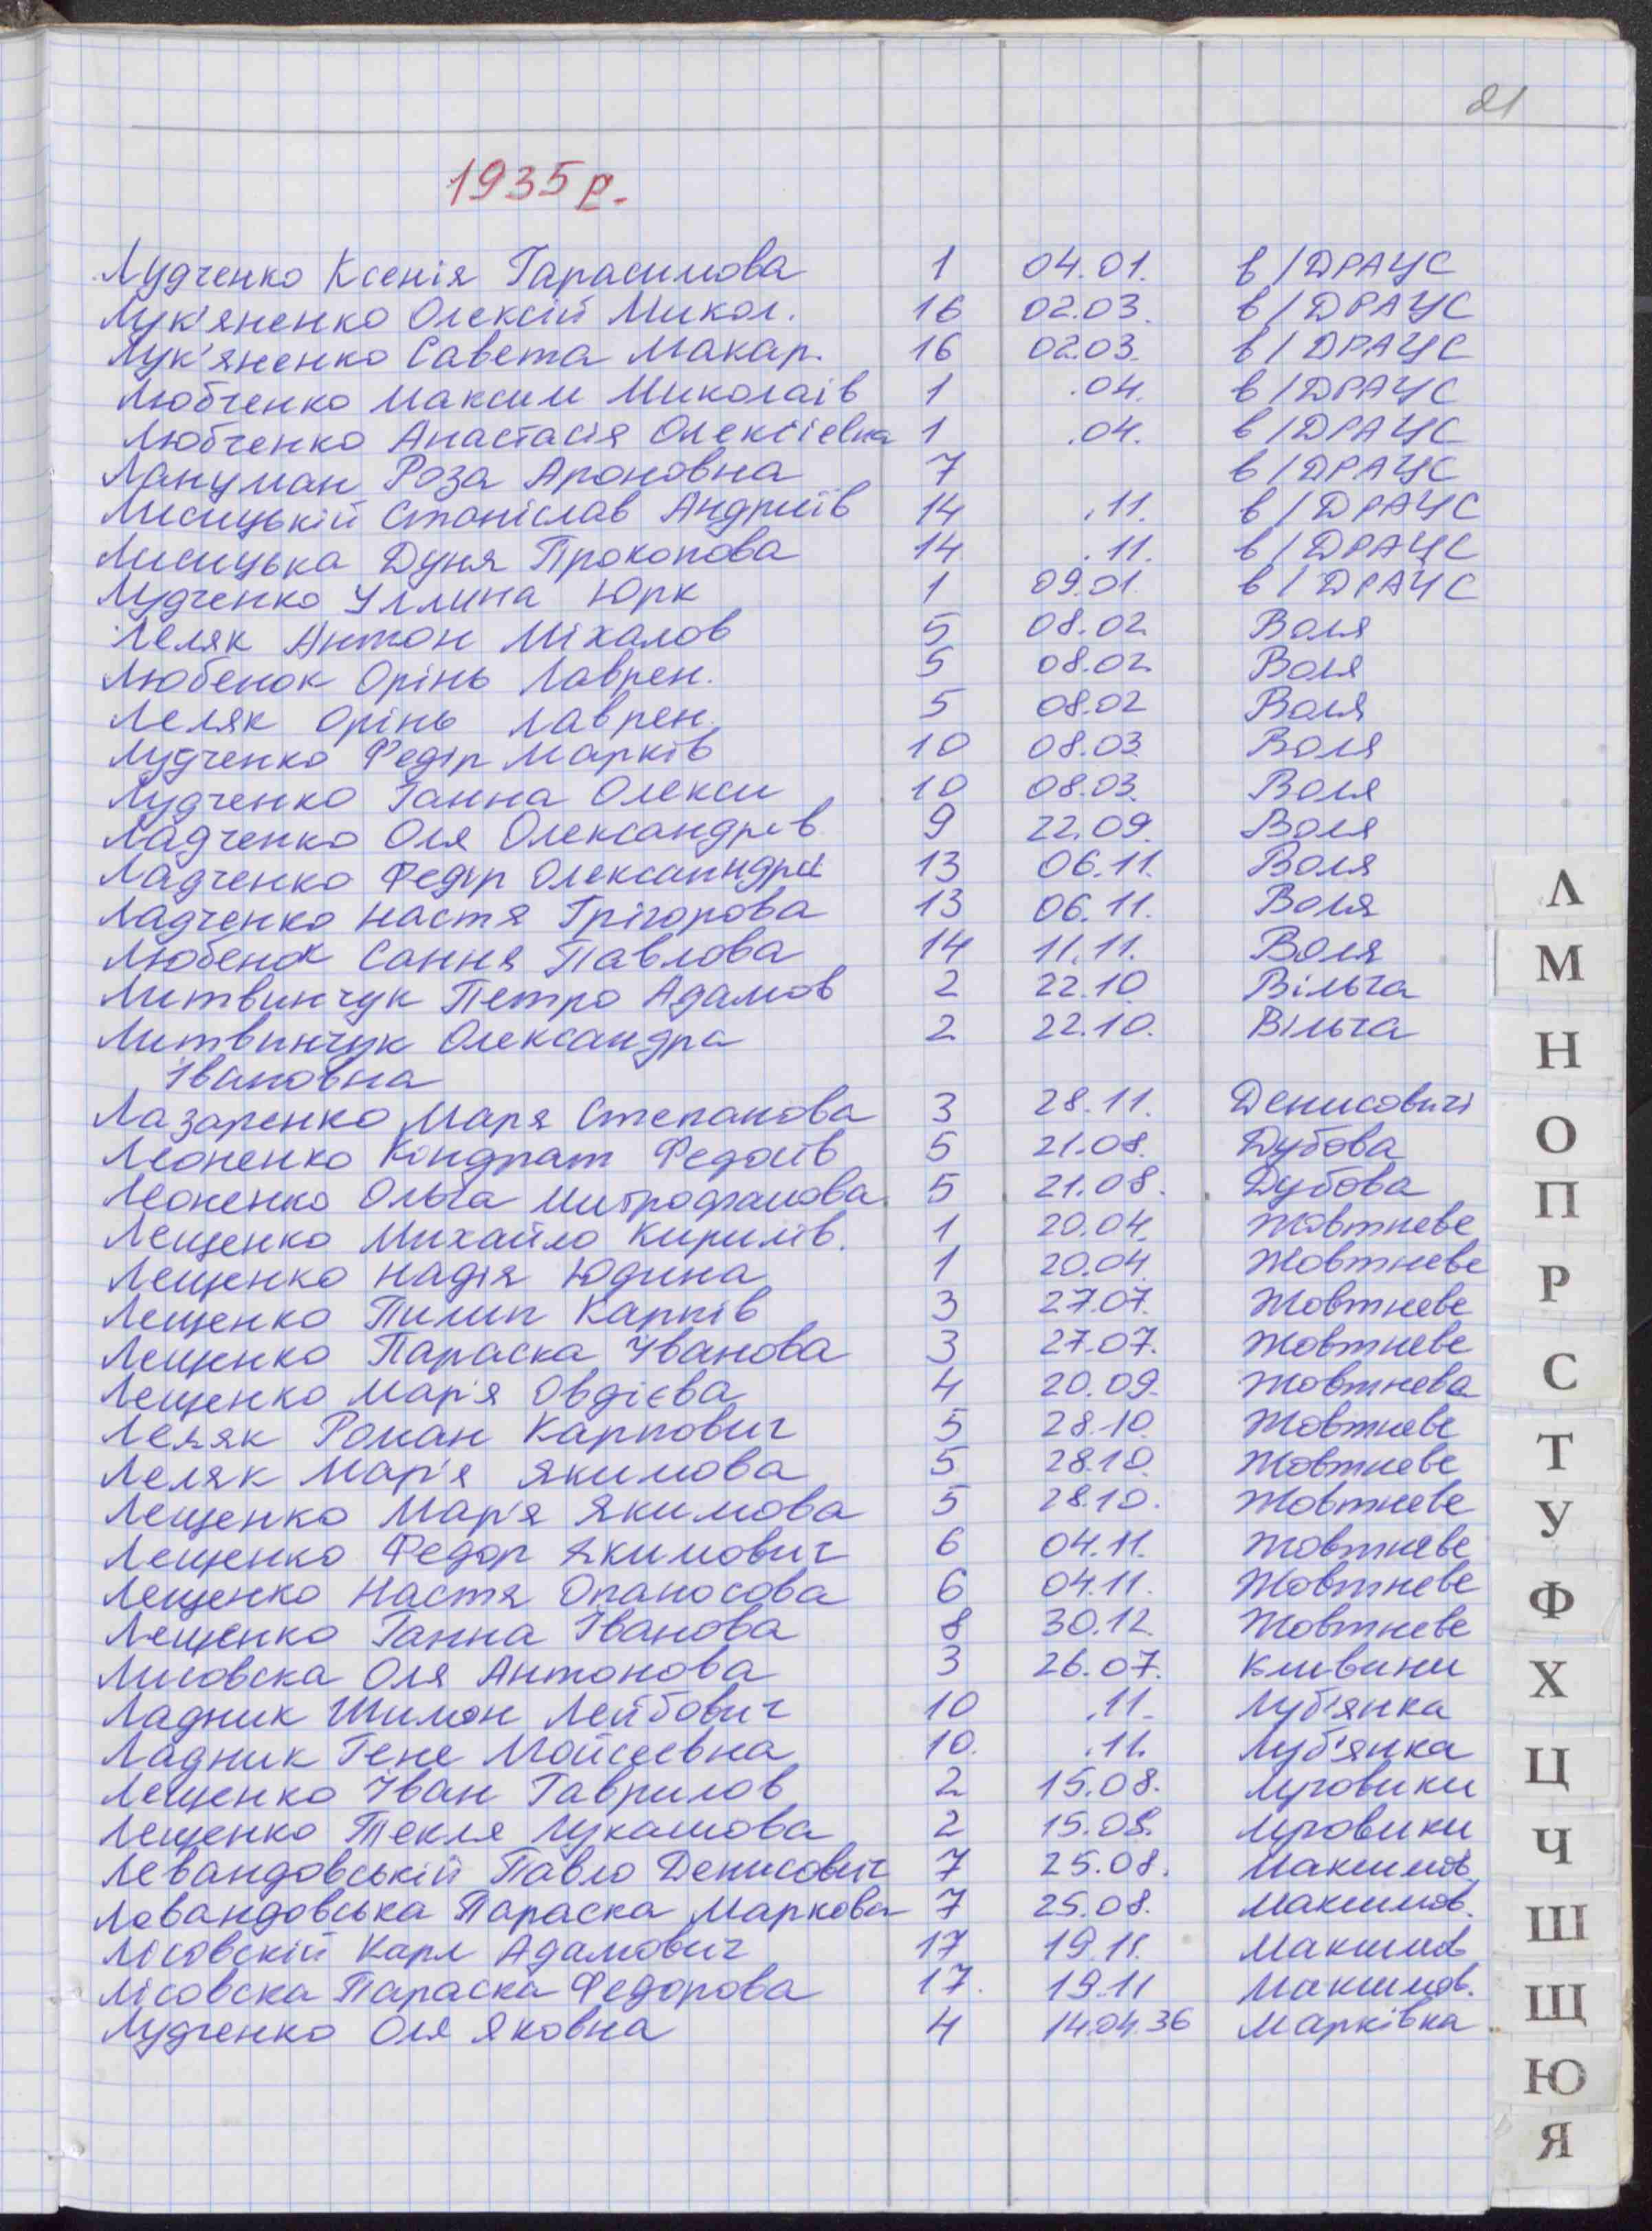 21
1935 р.
Лудченко Ксенія Гарасимова 1 04.01. в/ДРАЦС
Лук'яненко Олексій Микол. 16 02.03. в/ДРАЦС
Лук'яненко Савета Макар. 16 02.03. в/ДРАЦС
Любченко Максим Миколаїв 1 .04. в/ДРАЦС
Любченко Анастасія Олексіївна 1 .04. в/ДРАЦС
Лануман Роза Ароновна 7 в/ДРАЦС
Лисицькій Станіслав Андріїв 14 .11. в/ДРАЦС
Лисицька Дуня Прокопова 14 .11. в/ДРАЦС
Лудченко Уллина Юрк 1 09.01. в/ДРАЦС
Леляк Антон Міхалов 5 08.02 Воля
Любенок Орінь Лаврен. 5 08.02 Воля
Леляк Орінь Лаврен. 5 08.02 Воля
Лудченко Федір Марків 10 08.03. Воля
Лудченко Ганна Олекси 10 08.03. Воля
Ладченко Оля Олександрів 9 22.09. Воля
Ладченко Федір 13 06.11. Воля
Ладченко Настя Грігорова 13 06.11. Воля
Любенок Сання Павлова 14 11.11. Воля
Литвинчук Петро Адамов 2 22.10 Вільча
Литвинчук Олександра 2 22.10. Вільча
Івановна
Лазаренко Маря Степанова 3 28.11. Денисовичі
Леоненко Кондрат 5 21.08. Дубова
Леоненко Ольга Митрофанова 5 21.08. Дубова
Лещенко Михайло Кирилів. 1 20.04. Жовтневе
Лещенко Надія Юдина 1 20.04. Жовтневе
Лещенко Пилип Карпів 3 27.07. Жовтневе
Лещенко Параска Іванова 3 27.07. Жовтневе
Лещенко Мар'я Овдієва 4 20.09. Жовтнева
Леляк Роман Карпович 5 28.10 Жовтневе
Леляк Мар'я Якимова 5 28.10. Жовтневе
Лещенко Мар'я Якимова 5 28.10. Жовтневе
Лещенко Федор Якимович 6 04.11. Жовтневе
Лещенко Настя Опаносова 6 04.11. Жовтневе
Лещенко Ганна Іванова 8 30.12. Жовтневе
Лисовска Оля Антонова 3 26.07. Кливини
Ладник Шимон Лейбович 10 .11. Луб'янка
Ладник Гене Мойсеевна 10. .11. Луб'янка
Лещенко Іван Гаврилов 2 15.08. Луговики
Лещенко Текля Лукашова 2 15.08. Луговики
Левандовській Павло Денисович 7 25.08. Максимов.
Ловандовська Параска Маркова 7 25.08. Максимов.
Лісовскій Карл Адамович 17 19.11. Максимов
Лісовска Параска Федорова 17. 19.11 Максимов.
Лудченко Оля Яковна 4 14.04.36 Марківка
Л
М
Н
О
П
Р
С
Т
У
Ф
Х
Ц
Ч
Ш
Щ
Ю
Я